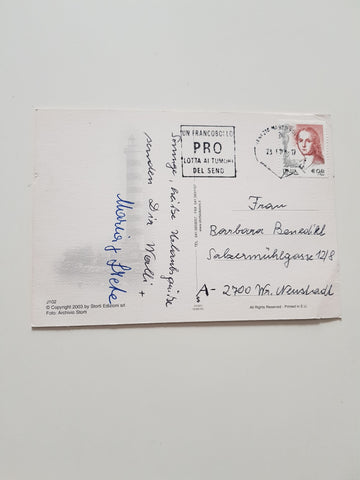 UN FRANCOBOLLO
PRO
LOTTA AI TUMORI
DEL SENO
Sonnige, heiße Urlaubsgrüße
senden Dir Walli +
Maria + Grete
Frau
Barbara Benedikt
Salzermühlgasse 12/8
A- 2700 Wr. Neustadt
J102
© Copyright 2003 by Storti Edizioni srl
Foto: Archivio Storti
All Rights Reserved - Printed in E.U.